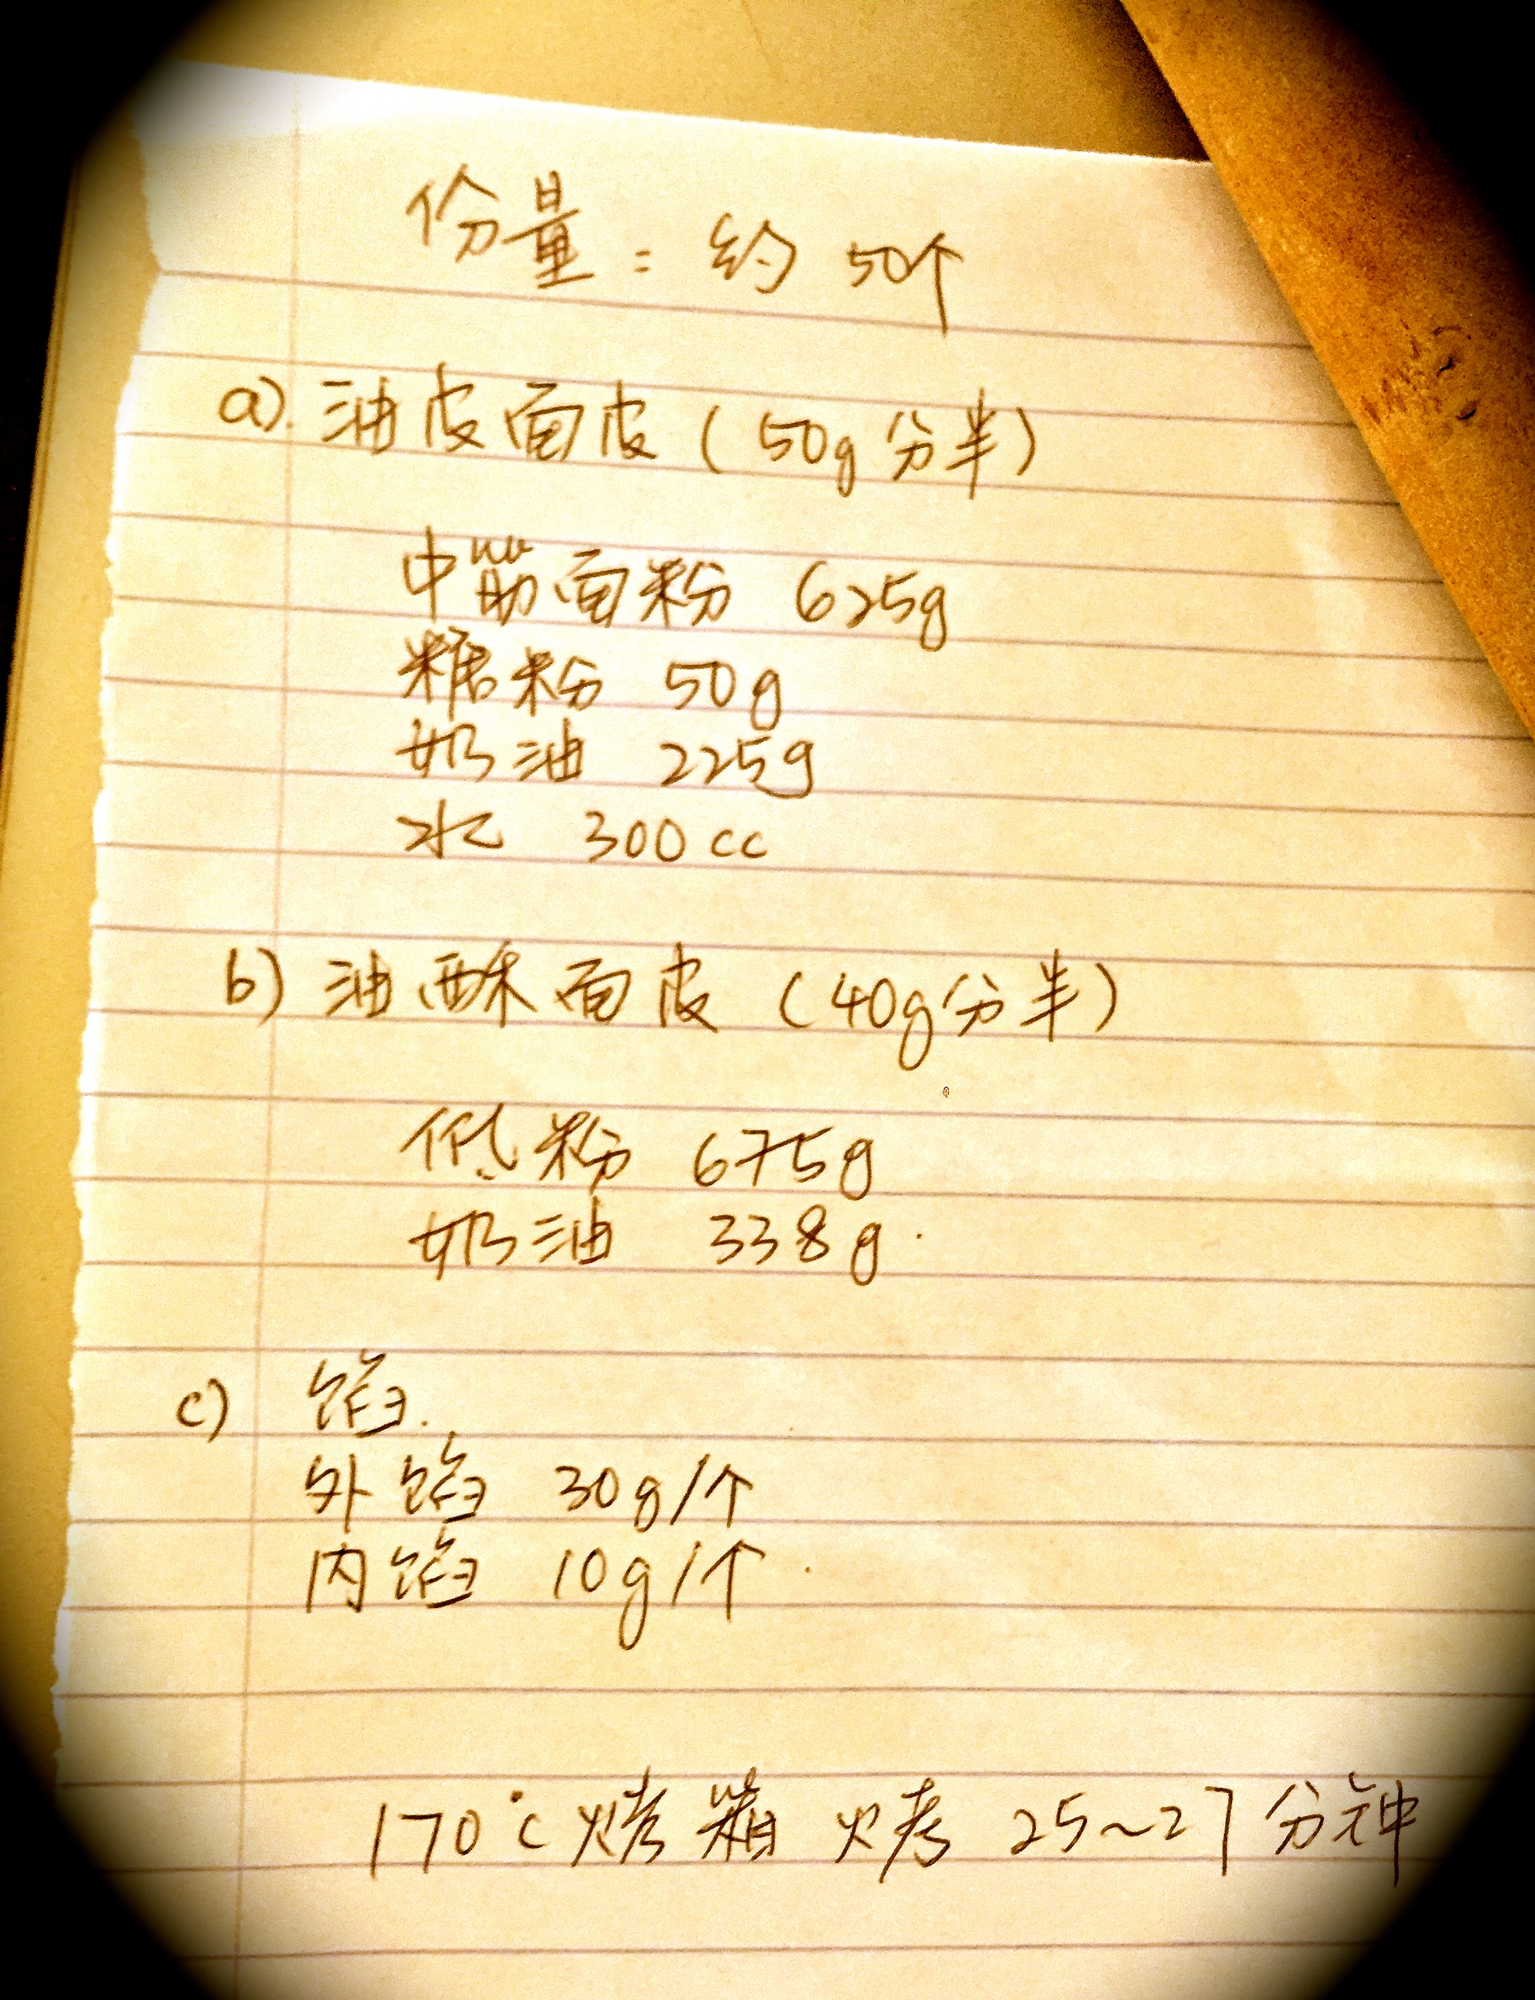 份量：约 50个
a). 油皮面皮 (50g分半)
中筋面粉 625g
糖粉 50g
奶油 225g
水 300cc
b) 油酥面皮 (40g分半)
低粉 675g
奶油 338g.
c) 馅.
外馅 30g/个
内馅 10g/个.
170℃ 烤箱 烤 25~27分钟